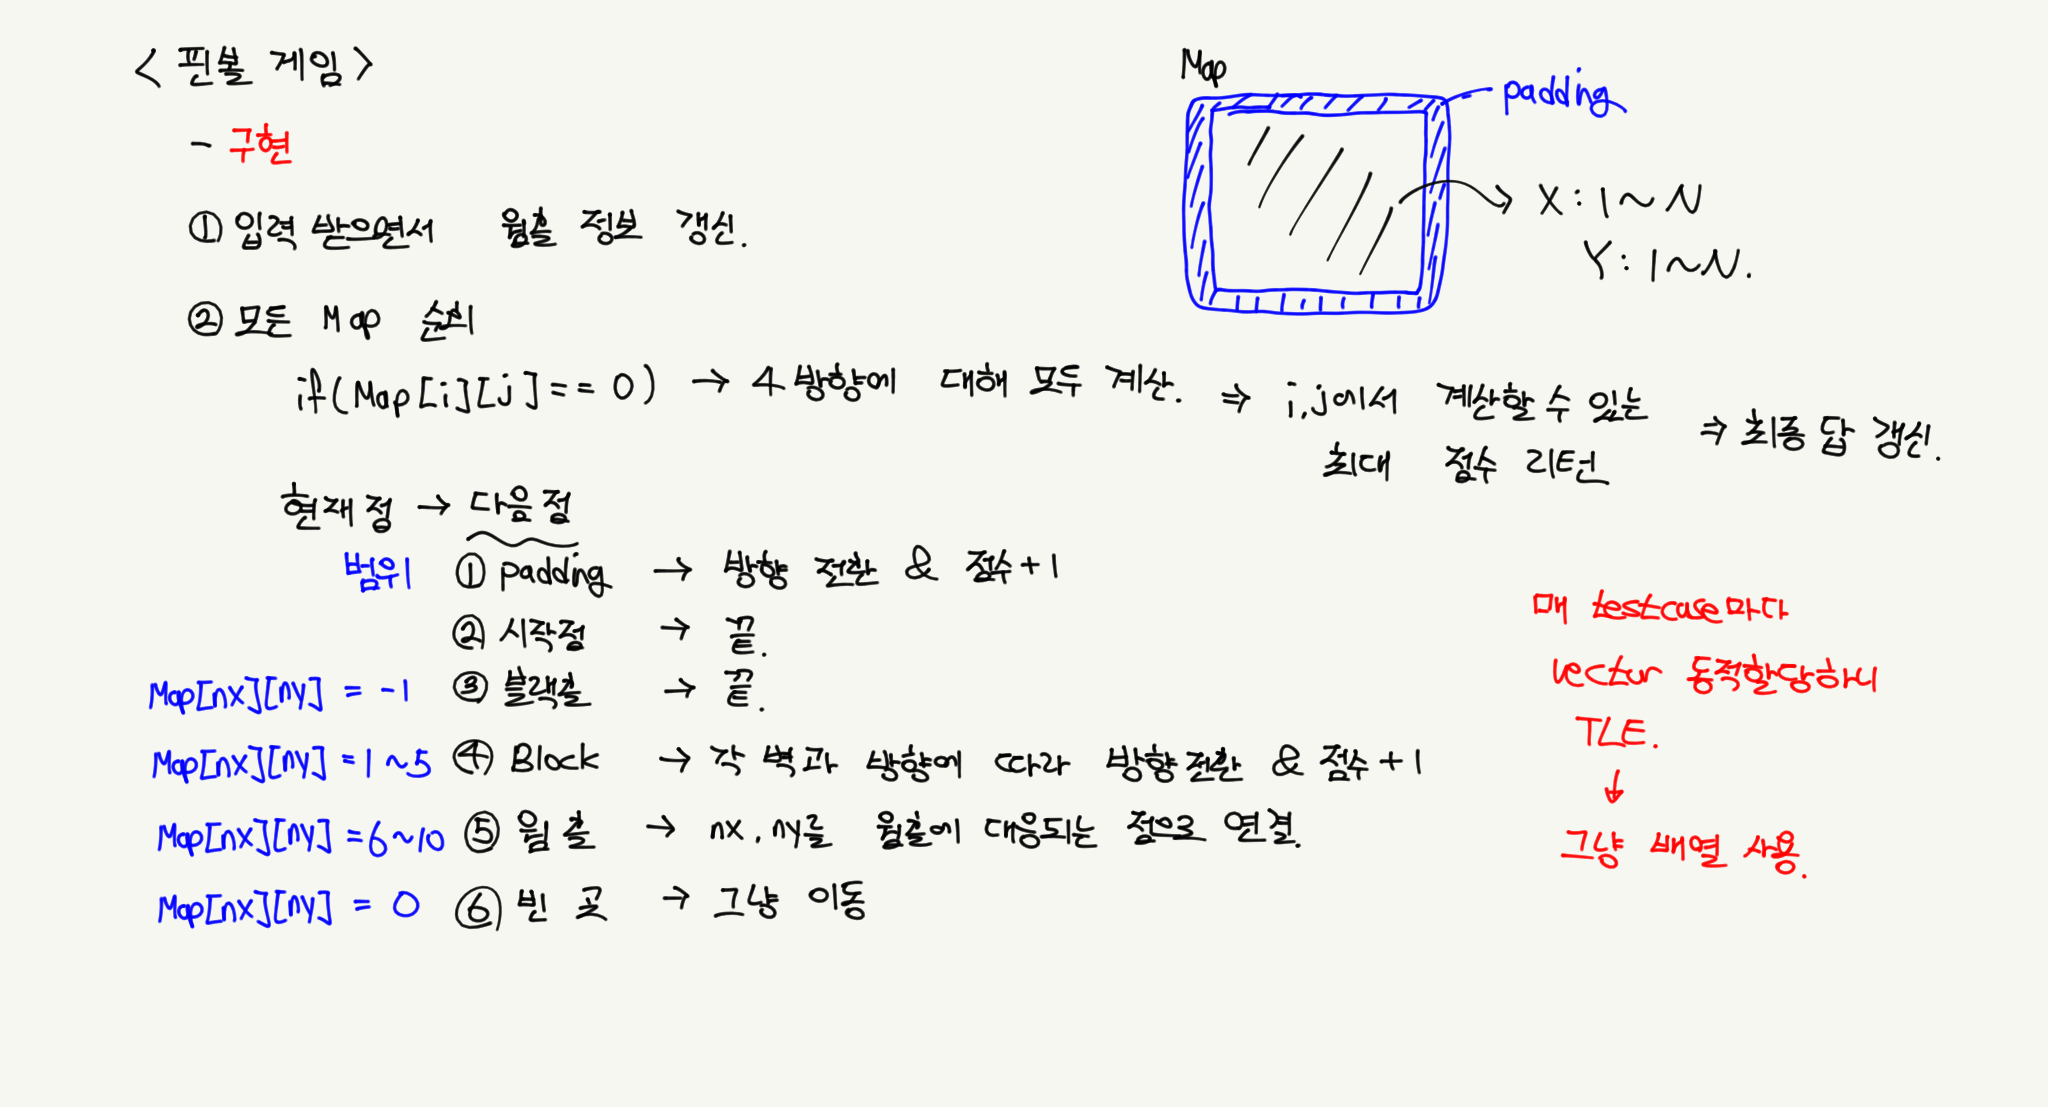 < 핀볼 게임 >
- 구현
① 입력 받으면서 웜홀 정보 갱신.
Map
padding
X : 1 ~ N
Y : 1 ~ N.
② 모든 Map 순회
if(Map[i][j] == 0) → 4 방향에 대해 모두 계산. ⇒ i,j에서 계산할 수 있는 최대 점수 리턴 ⇒ 최종 답 갱신.
현재 점 → 다음 점
범위 ① padding → 방향 전환 & 점수 + 1
② 시작점 → 끝.
Map[nx][ny] = -1 ③ 블랙홀 → 끝.
Map[nx][ny] = 1 ~ 5 ④ Block → 각 벽과 방향에 따라 방향 전환 & 점수 + 1
Map[nx][ny] = 6 ~ 10 ⑤ 웜홀 → nx, ny를 웜홀에 대응되는 점으로 연결.
Map[nx][ny] = 0 ⑥ 빈 곳 → 그냥 이동
매 testcase마다
vector 동적할당하니
TLE.
↓
그냥 배열 사용.